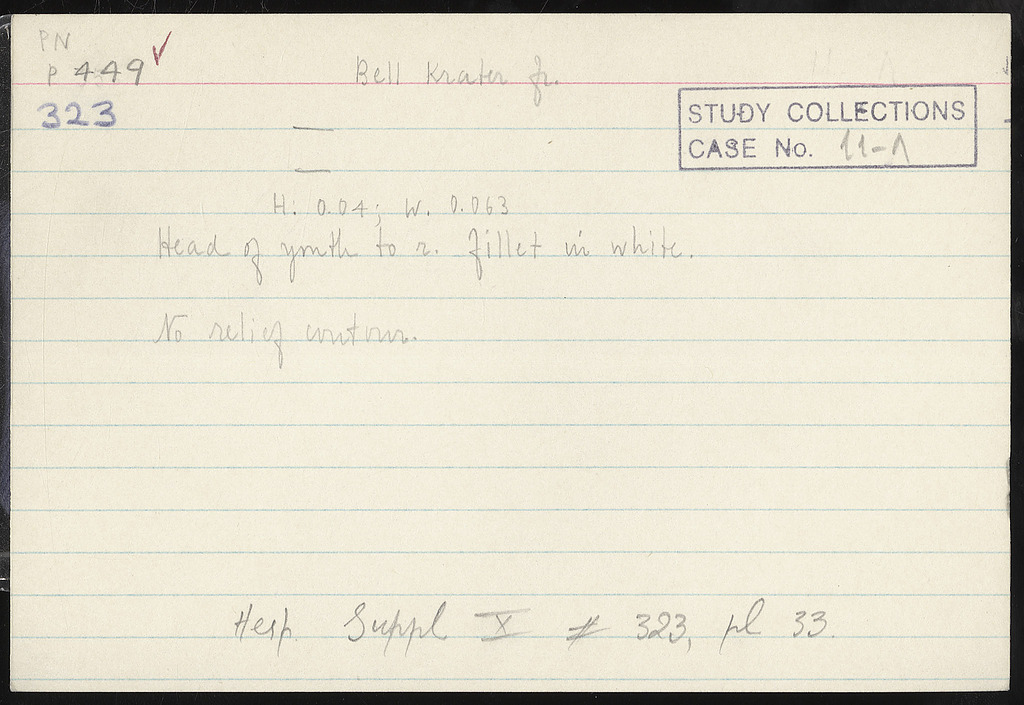 PN
P 449 ✓
Bell Krater fr.
323
STUDY COLLECTIONS
CASE No. 11-A
H: 0.04; W. 0.063
Head of youth to r. Fillet in white.
No relief contour.
Hesp. Suppl X # 323, pl 33.